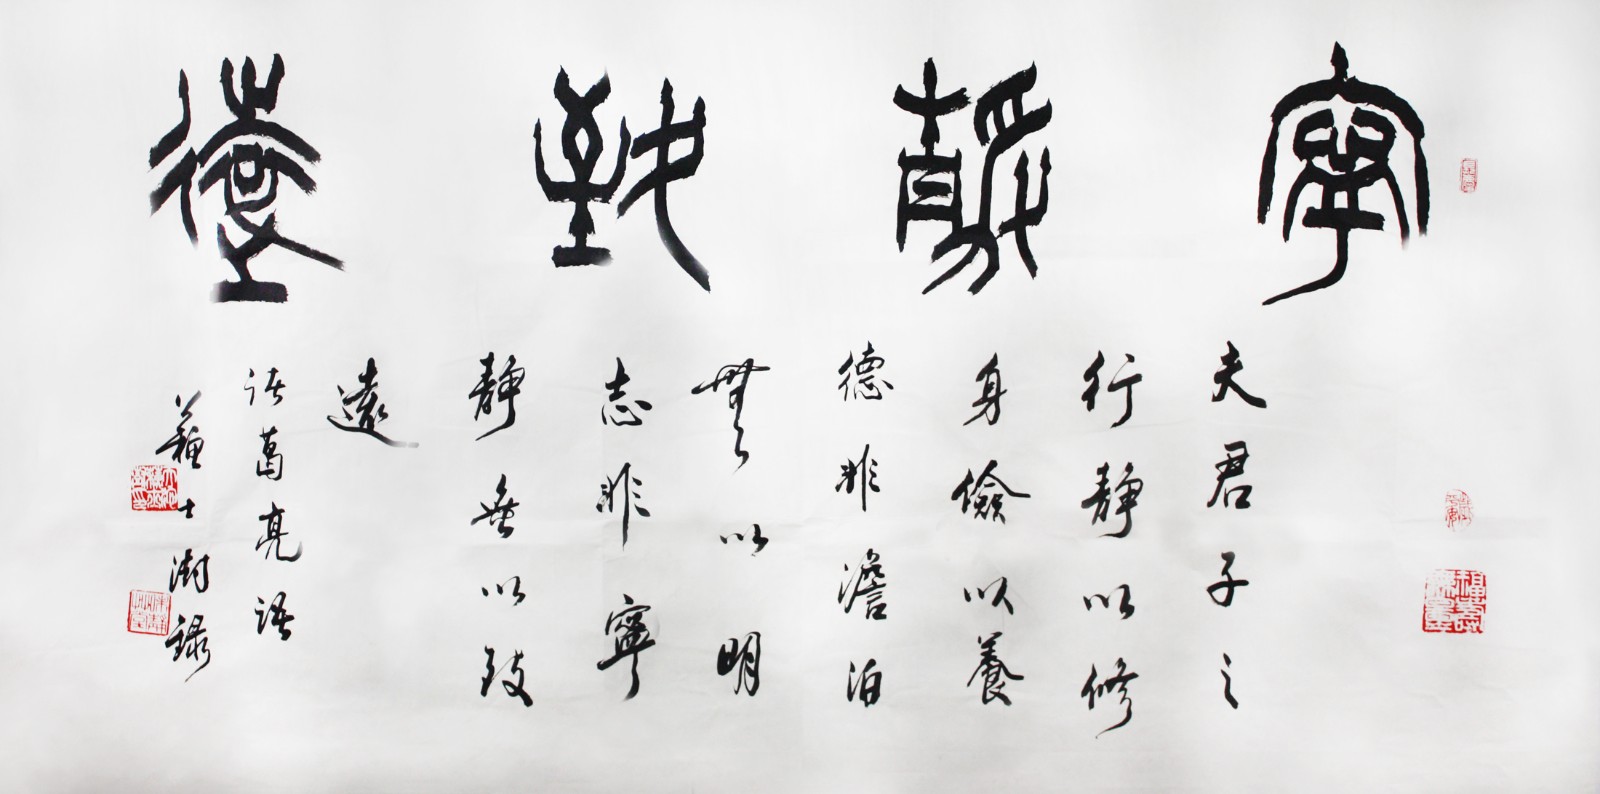 寧靜致遠
夫君子之
行靜以修
身儉以養
德非澹泊
無以明
志非寧
靜無以致
遠
諸葛亮語
士澍錄